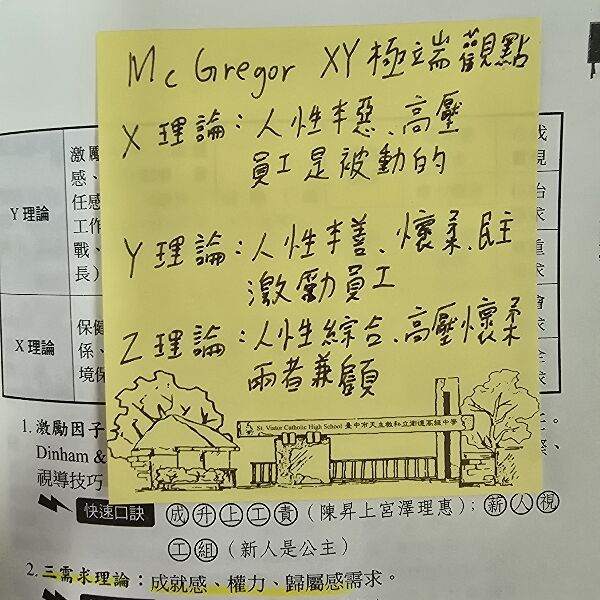 Mc Gregor XY 極端觀點
X 理論：人性本惡、高壓
員工是被動的
Y 理論：人性本善、懷柔、民主
激勵員工
Z 理論：人性綜合、高壓懷柔
兩者兼顧
St. Viator Catholic High School 臺中市天主教私立衛道高級中學
Y 理論
激勵
感、
任感
工作
戰、
長）
X 理論
保健
係、
境保
1. 激勵因子
Dinham &
視導技巧
快速口訣 成升上工責（陳昇上宮澤理惠）；薪人視
工組（新人是公主）
2. 三需求理論：成就感、權力、歸屬感需求。